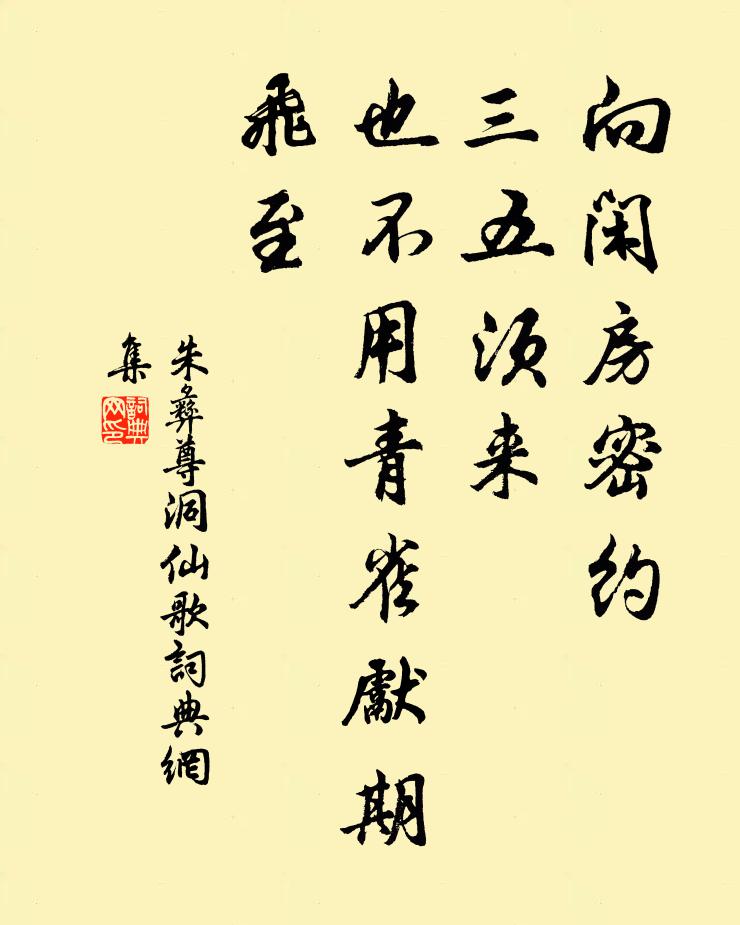 向閑房密約
三五須来
也不用青雀獻期
飛至
朱彝尊洞仙歌詞典網
集
詞典
网印